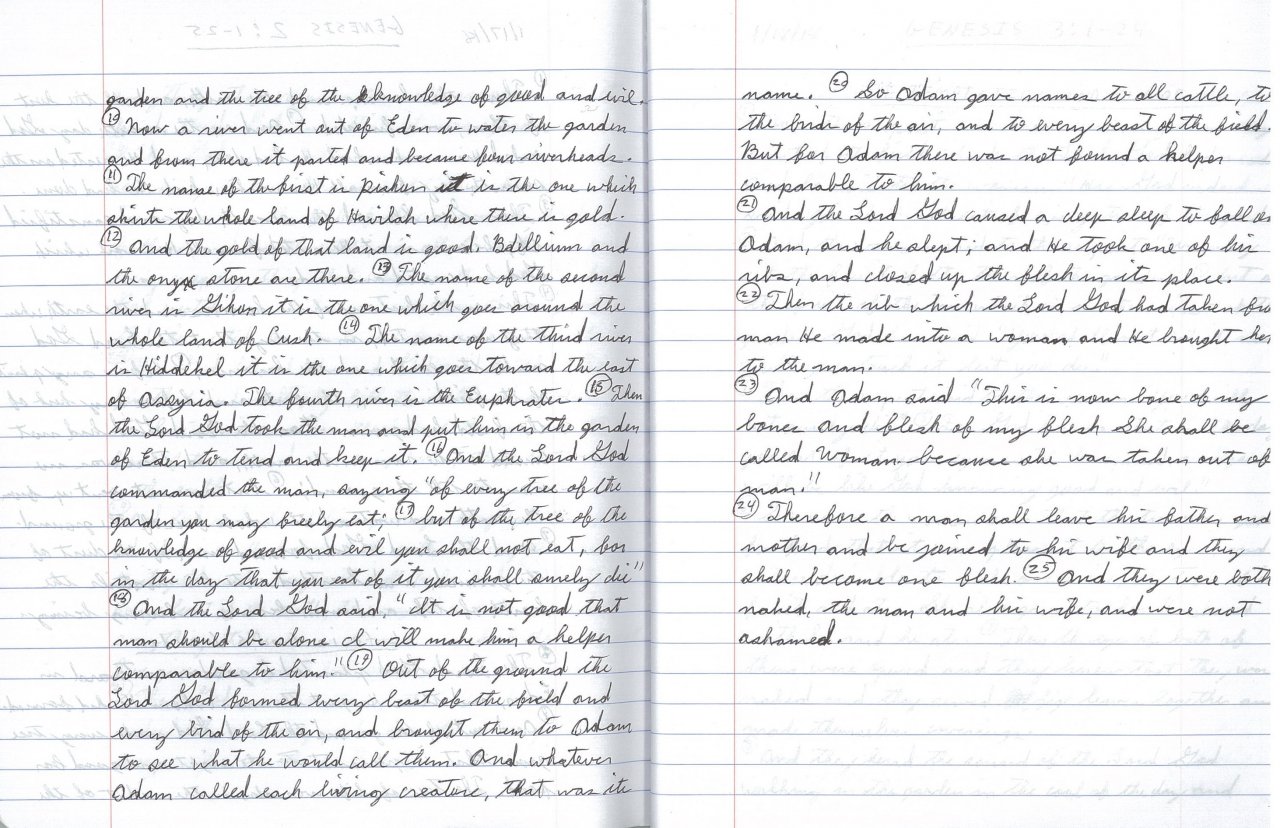 garden and the tree of the knowledge of good and evil.
⑩ Now a river went out of Eden to water the garden
and from there it parted and became four riverheads.
⑪ The name of the first is Pishon it is the one which
skirts the whole land of Havilah where there is gold.
⑫ And the gold of that land is good. Bdellium and
the onyx stone are there. ⑬ The name of the second
river is Gihon it is the one which goes around the
whole land of Cush. ⑭ The name of the third river
is Hiddekel it is the one which goes toward the east
of Assyria. The fourth river is the Euphrates. ⑮ Then
the Lord God took the man and put him in the garden
of Eden to tend and keep it. ⑯ And the Lord God
commanded the man, saying "of every tree of the
garden you may freely eat; ⑰ but of the tree of the
knowledge of good and evil you shall not eat, for
in the day that you eat of it you shall surely die"
⑱ And the Lord God said, "It is not good that
man should be alone I will make him a helper
comparable to him." ⑲ Out of the ground the
Lord God formed every beast of the field and
every bird of the air, and brought them to Adam
to see what he would call them. And whatever
Adam called each living creature, that was its
name. ⑳ So Adam gave names to all cattle, to
the birds of the air, and to every beast of the field.
But for Adam there was not found a helper
comparable to him.
㉑ And the Lord God caused a deep sleep to fall on
Adam, and he slept; and He took one of his
ribs, and closed up the flesh in its place.
㉒ Then the rib which the Lord God had taken
man He made into a woman and He brought her
to the man.
㉓ And Adam said "This is now bone of my
bones and flesh of my flesh She shall be
called Woman. because she was taken out of
man."
㉔ Therefore a man shall leave his father and
mother and be joined to his wife and they
shall become one flesh. ㉕ And they were both
naked, the man and his wife, and were not
ashamed.